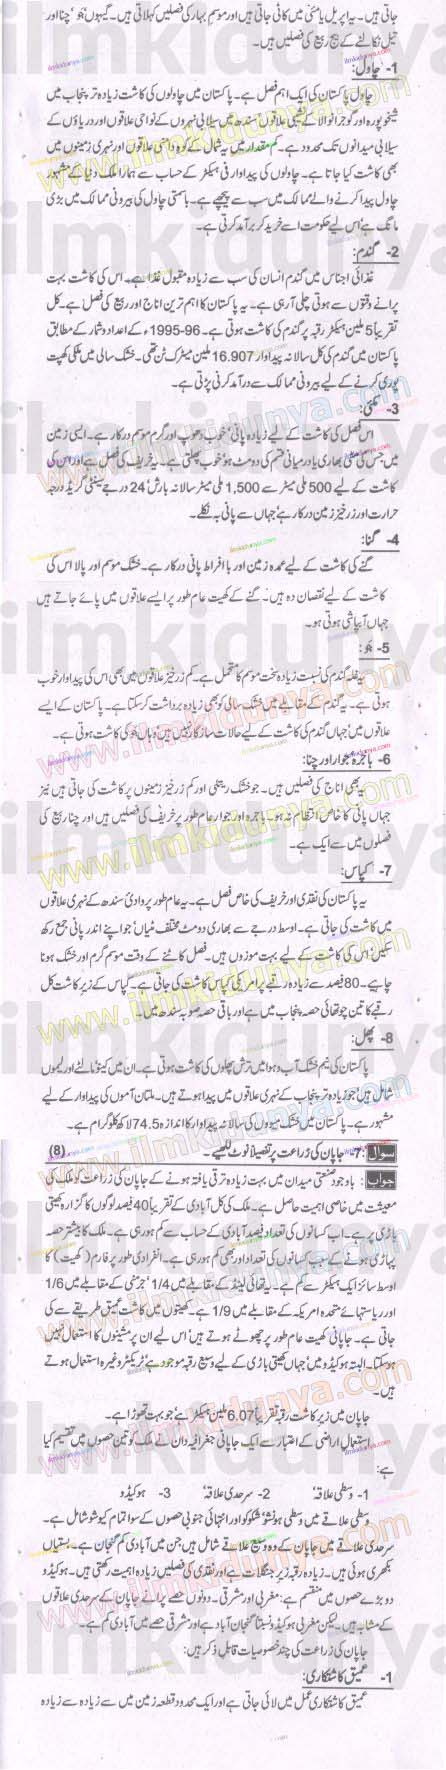 جاتی ہیں۔ یہ اپریل یا مئی میں کاٹی جاتی ہیں اور موسم بہار کی فصلیں کہلاتی ہیں۔ گیہوں، جَو، چنا اور
تیل نکالنے کے بیج ربیع کی فصلیں ہیں۔
1- چاول:
چاول پاکستان کی ایک اہم فصل ہے۔ پاکستان میں چاولوں کی کاشت زیادہ تر پنجاب میں
شیخوپورہ اور گوجرانوالا کے نشیبی علاقوں، سندھ میں سیلابی نہروں کے نواحی علاقوں اور دریاؤں کے
سیلابی میدانوں تک محدود ہے۔ کم مقدار میں یہ شمال کے کوہ دامنی علاقوں اور نہری زمینوں میں
بھی کاشت کیا جاتا ہے۔ چاولوں کی پیداوار فی ہیکٹر کے حساب سے ہمارا ملک دنیا کے مشہور
چاول پیدا کرنے والے ممالک میں سب سے پیچھے ہے۔ باسمتی چاول کی بیرونی ممالک میں بڑی
مانگ ہے، اس لیے حکومت اسے خرید کر برآمد کرتی ہے۔
2- گندم:
غذائی اجناس میں گندم انسان کی سب سے زیادہ مقبول غذا ہے۔ اس کی کاشت بہت
پرانے وقتوں سے ہوتی چلی آ رہی ہے۔ یہ پاکستان کا اہم ترین اناج اور ربیع کی فصل ہے۔ کل
تقریباً 5 ملین ہیکٹر رقبہ پر گندم کی کاشت ہوتی ہے۔ 96-1995ء کے اعداد و شمار کے مطابق
پاکستان میں گندم کی کل سالانہ پیداوار 16.907 ملین میٹرک ٹن تھی۔ خشک سالی میں ملکی کھپت
پوری کرنے کے لیے بیرونی ممالک سے درآمد کرنی پڑتی ہے۔
3- مکئی:
اس فصل کی کاشت کے لیے زیادہ پانی، خوب دھوپ اور گرم موسم درکار ہے۔ ایسی زمین
میں جس کی مٹی بھاری یا درمیانی قسم کی دومٹ ہو، خوب پھلتی ہے۔ یہ خریف کی فصل ہے اور اس کی
کاشت کے لیے 500 ملی میٹر سے 1,500 ملی میٹر سالانہ بارش، 24 درجے سینٹی گریڈ درجہ
حرارت اور زرخیز زمین درکار ہے، جہاں سے پانی بہ نکلے۔
4- گنا:
گنے کی کاشت کے لیے عمدہ زمین اور باافراط پانی درکار ہے۔ خشک موسم اور پالا اس کی
کاشت کے لیے نقصان دہ ہیں۔ گنے کے کھیت عام طور پر ایسے علاقوں میں پائے جاتے ہیں
جہاں آبپاشی ہوتی ہو۔
5- جَو:
یہ غلہ گندم کی نسبت زیادہ سخت موسم کا متحمل ہے۔ کم زرخیز علاقوں میں بھی اس کی پیداوار خوب
ہوتی ہے۔ یہ گندم کے مقابلے میں خشک سالی کو بھی زیادہ برداشت کر سکتا ہے۔ پاکستان کے ایسے
علاقوں میں، جہاں گندم کی کاشت کے لیے حالات سازگار نہیں ہیں، وہاں جَو کی کاشت ہوتی ہے۔
6- باجرہ، جوار اور چنا:
یہ بھی اناج کی فصلیں ہیں۔ جو خشک، ریتلی اور کم زرخیز زمینوں پر کاشت کی جاتی ہیں نیز
جہاں پانی کا خاص انتظام نہ ہو۔ باجرہ اور جوار عام طور پر خریف کی فصلیں ہیں اور چنا ربیع کی
فصلوں میں سے ایک ہے۔
7- کپاس:
یہ پاکستان کی نقدی اور خریف کی خاص فصل ہے۔ یہ عام طور پر وادیٔ سندھ کے نہری علاقوں
میں کاشت کی جاتی ہے۔ اوسط درجے سے بھاری دومٹ مختلف مٹیاں، جو اپنے اندر پانی جمع رکھ
سکیں، اس کی کاشت کے لیے بہت موزوں ہیں۔ فصل کاٹنے کے وقت موسم گرم اور خشک ہونا
چاہیے۔ 80 فیصد سے زیادہ رقبے پر امریکی کپاس کاشت کی جاتی ہے۔ کپاس کے زیرِ کاشت کل
رقبے کا تین چوتھائی حصہ پنجاب میں ہے اور باقی حصہ صوبہ سندھ میں۔
8- پھل:
پاکستان کی نیم خشک آب و ہوا میں ترش پھلوں کی کاشت ہوتی ہے۔ ان میں کینو، مالٹے اور لیموں
شامل ہیں، جو زیادہ تر پنجاب کے نہری علاقوں میں پیدا ہوتے ہیں۔ ملتان آموں کی پیداوار کے لیے
مشہور ہے۔ پاکستان میں خشک میووں کی سالانہ پیداوار کا اندازہ 74.5 لاکھ کلوگرام ہے۔
سوال 7: جاپان کی زراعت پر تفصیلاً نوٹ لکھیے۔ (8)
جواب: باوجود صنعتی میدان میں بہت زیادہ ترقی یافتہ ہونے کے جاپان کی زراعت کو ملک کی
معیشت میں خاصی اہمیت حاصل ہے۔ ملک کی کل آبادی کے تقریباً 40 فیصد لوگوں کا گزارہ کھیتی
باڑی پر ہے۔ اب کسانوں کی تعداد فیصد آبادی کے حساب سے کم ہو رہی ہے۔ ملک کا بیشتر حصہ
پہاڑی ہونے کے سبب کسانوں کی تعداد اور بھی کم ہو رہی ہے۔ انفرادی طور پر فارم (کھیت) کا
اوسط سائز ایک ہیکٹر سے کم ہے۔ یہ تھائی لینڈ کے مقابلے میں 1/4، جرمنی کے مقابلے میں 1/6
اور ریاستہائے متحدہ امریکہ کے مقابلے میں 1/9 ہے۔ کھیتوں میں کاشت عمیق طریقے سے کی
جاتی ہے۔ جاپانی کھیت عام طور پر چھوٹے ہوتے ہیں، اس لیے ان پر مشینوں کا استعمال نہیں
ہو سکتا۔ البتہ ہوکیڈو میں، جہاں کھیتی باڑی کے لیے وسیع رقبہ موجود ہے، ٹریکٹر وغیرہ استعمال ہوتے
ہیں۔
جاپان میں زیرِ کاشت رقبہ تقریباً 6.07 ملین ہیکٹر ہے، جو بہت تھوڑا ہے۔
استعمالِ اراضی کے اعتبار سے ایک جاپانی جغرافیہ دان نے ملک کو تین حصوں میں تقسیم کیا
ہے:
1- وسطی علاقہ، 2- سرحدی علاقہ، 3- ہوکیڈو
وسطی علاقے میں وسطی ہونشو، شکوکو اور انتہائی جنوبی حصوں کے سوا تمام کیوشو شامل ہے۔
سرحدی علاقے میں جاپان کے وہ وسیع علاقے شامل ہیں، جن میں آبادی کم گنجان ہے۔ بستیاں
بکھری ہوئی ہیں۔ زیادہ رقبہ زیرِ جنگلات ہے اور نقدی کی فصلیں زیادہ اہمیت رکھتی ہیں۔ ہوکیڈو
دو بڑے حصوں میں منقسم ہے: مغربی اور مشرقی۔ دونوں حصے پرانے جاپان کے سرحدی علاقوں
کے مشابہ ہیں۔ لیکن مغربی ہوکیڈو نسبتاً گنجان آباد ہے اور مشرقی حصے میں آبادی کم ہے۔
جاپان کی زراعت کی چند خصوصیات قابلِ ذکر ہیں:
1- عمیق کاشتکاری:
عمیق کاشتکاری عمل میں لائی جاتی ہے اور ایک محدود قطعہ زمین میں سے زیادہ سے زیادہ